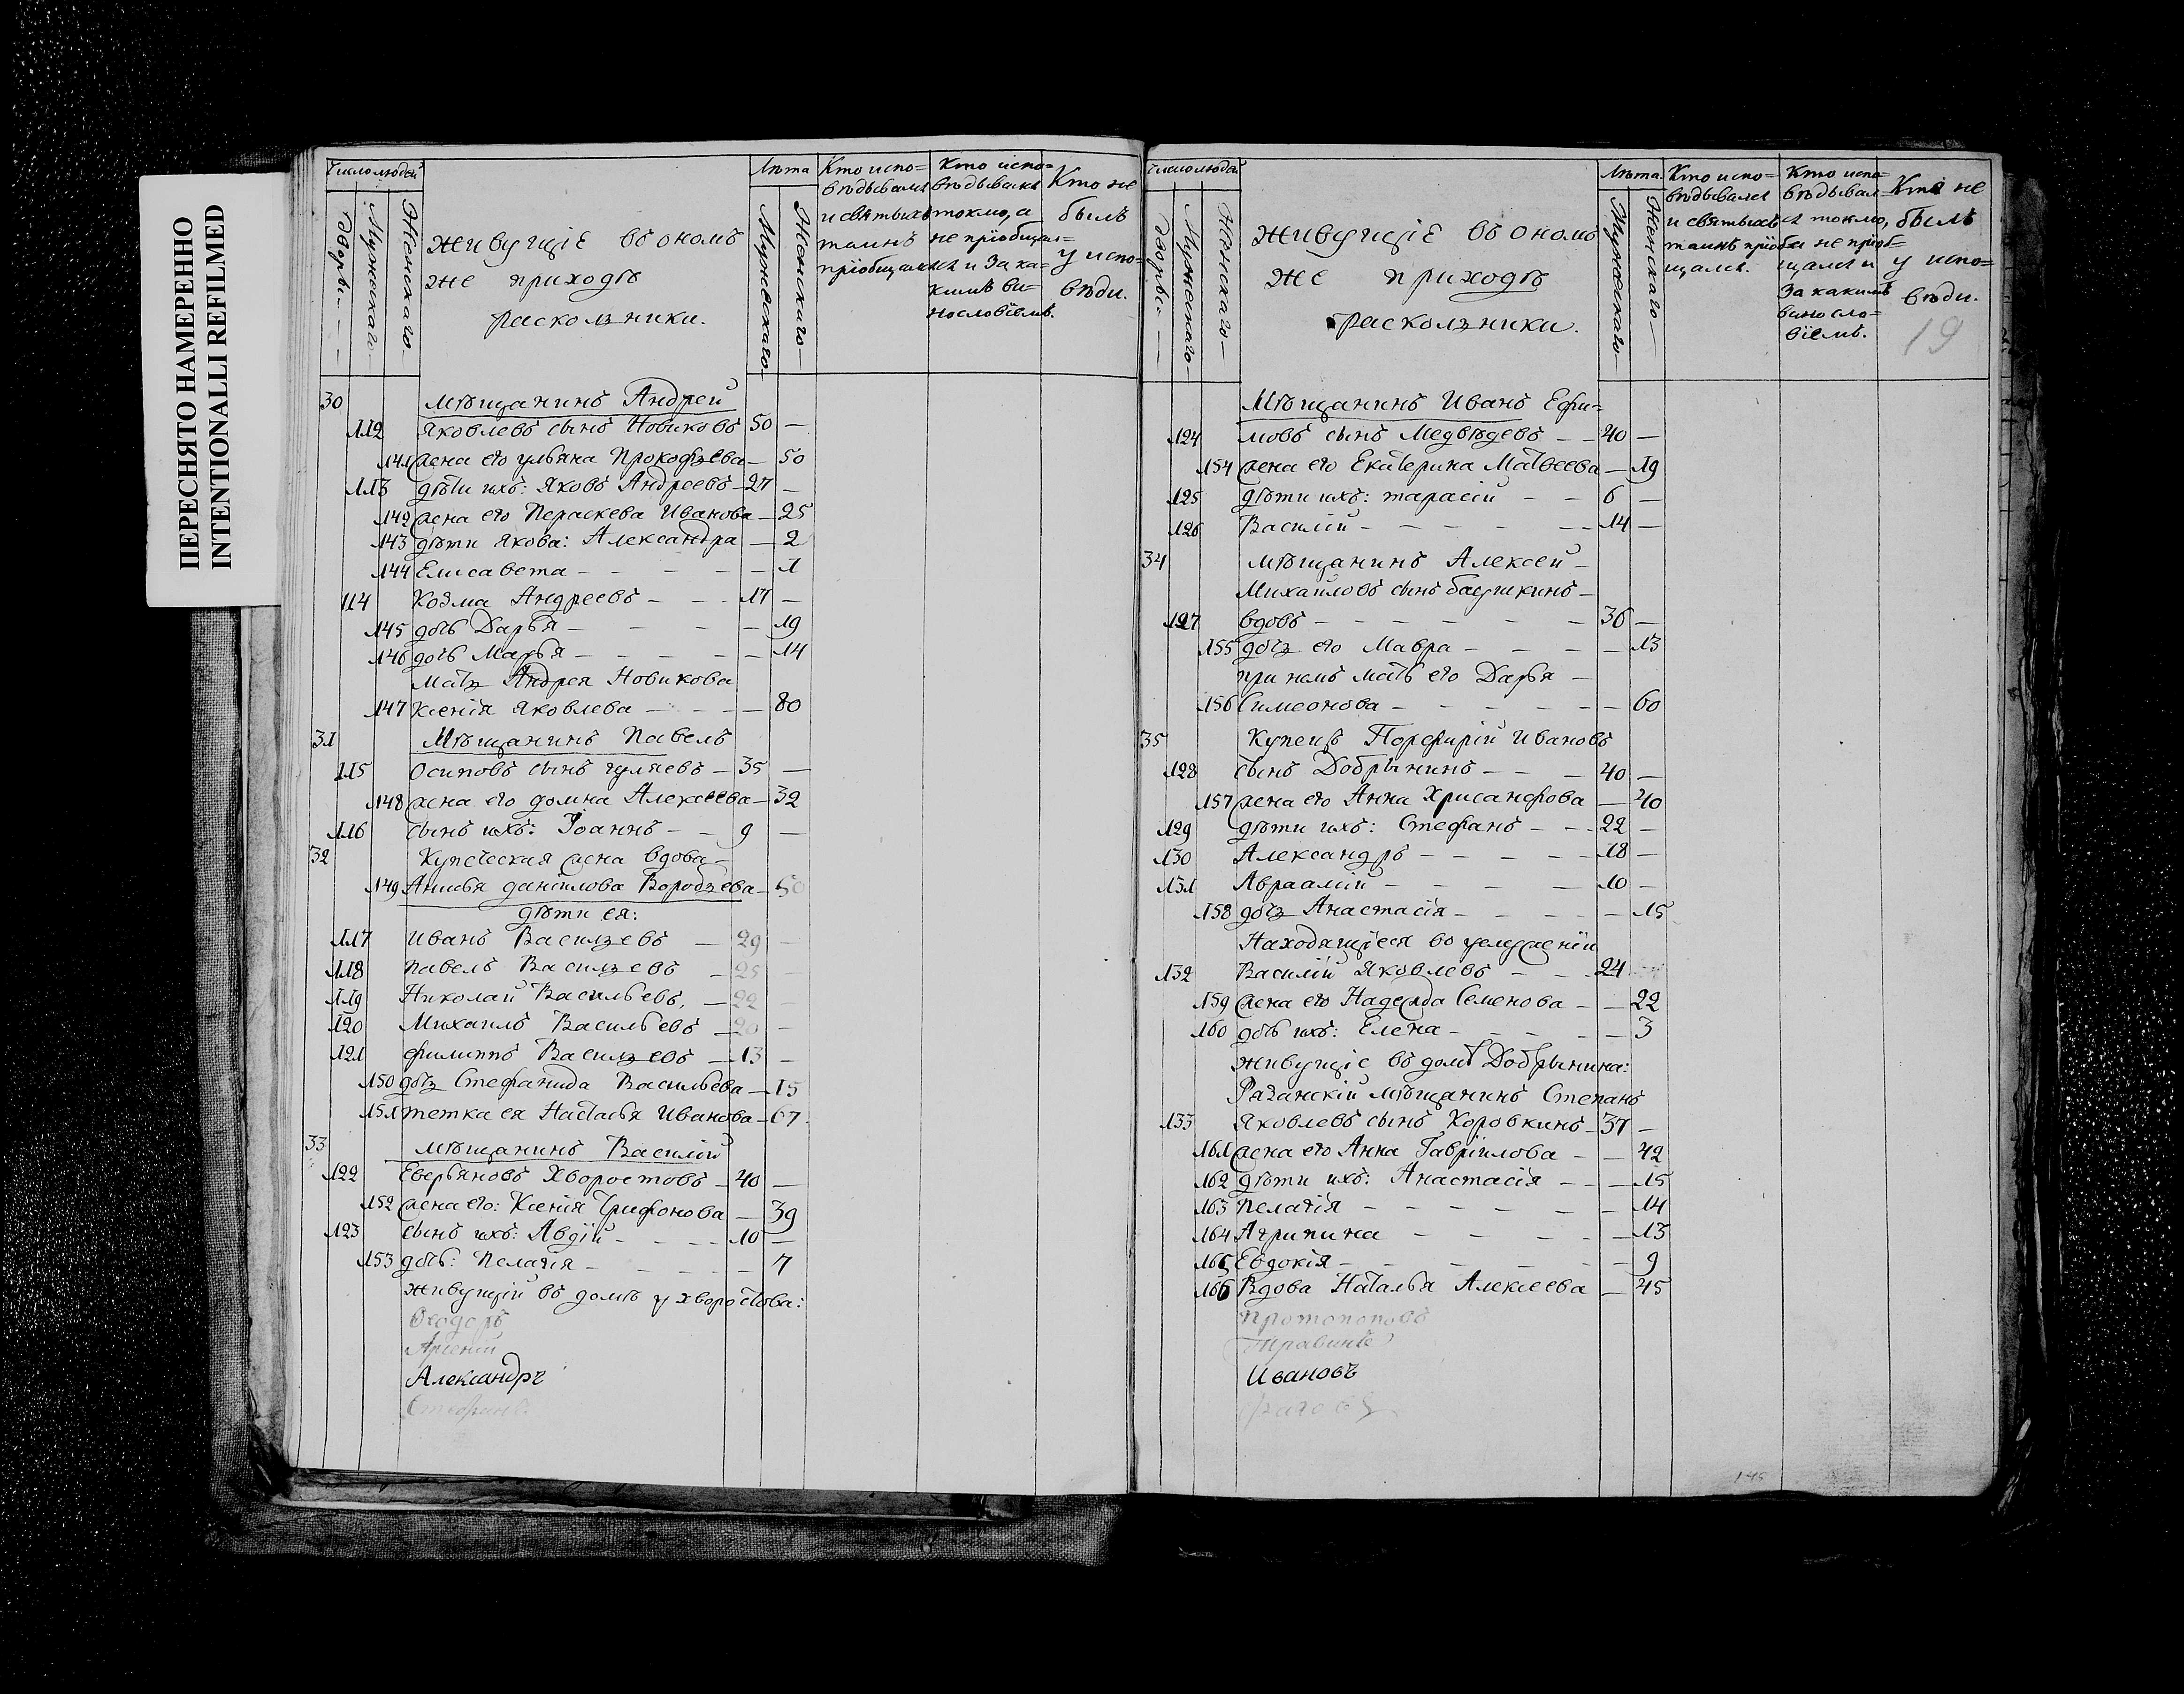 ПЕРЕСНЯТО НАМЕРЕННО
INTENTIONALLI REFILMED
Число людей
Дворы.
Мужескаго
Женскаго
живущіе въ ономъ
же приходѣ
расколзники.
Лѣта
Мужескаго
Женскаго
Кто испо=
вѣдывался
и святыхъ
таинъ
пріобщался
Кто испо=
вѣдывался
токмо, а
не пріобщал=
ся и за ка=
кимъ ви=
нословіемъ.
Кто не
былъ
у испо=
вѣди.
30 Мѣщанинъ Андрей
112 Яковлевъ сынъ Новиковъ 50 —
141 жена его ульяна Прокофзева — 50
113 дѣти ихъ: Яковъ Андреевъ — 27 —
142 жена его Параскева Иванова — 25
143 дѣти Якова: Александра — 2
144 Елисавета — — — — 1
114 Козма Андреевъ — — 17 —
145 дочь Дарья — — — — 19
146 дочь Марья — — — — 14
Матз Андрея Новикова
147 Ксенія Яковлева — — — 80
31 Мѣщанинъ Павелъ
115 Осиповъ сынъ гуляевъ — 35 —
148 жена его домна Алексеева — 32
116 сынъ ихъ: Іоаннъ — — 9 —
32 Купеческая жена вдова —
149 Анисья даніилова Воробзева — 50
дѣти ея:
117 Иванъ Василзевъ — 29 —
118 Павелъ Василзевъ — 25 —
119 Николай Васильевъ, — 22 —
120 Михаилъ Васильевъ — 20 —
121 филиппъ Василзевъ — 13 —
150 дочз Стефанида Васильева — 15
151 тетка ея Настасья Иванова — 67
33 мѣщанинъ Василій
122 Еверьяновъ Хворостовъ — 40 —
152 жена его: Ксенія Трифонова — 39
123 сынъ ихъ: Авдій — — — 10 —
153 дочь: Пелагія — — — — 7
живущій въ домѣ у хворостова:
Ѳеодоръ
Арсеній
Александръ
Стефанъ
Число людей
Дворы.
Мужескаго
Женскаго
живущіе въ ономъ
же приходѣ
расколзники.
Лѣта
Мужескаго
Женскаго
Кто испо=
вѣдывался
и святыхъ
таинъ пріоб=
щался.
Кто испо=
вѣдывал=
ся токмо,
а не пріоб=
щался и
за какимъ
винosло=
віемъ.
Кто не
былъ
у испо=
вѣди.
19
Мѣщанинъ Иванъ Ефи=
124 мовъ сынъ Медвѣдевъ — — 40 —
154 жена его Екатерина Матвеева — 19
125 дѣти ихъ: тарасій — — 6 —
126 Василій — — — — — 14 —
34 мѣщанинъ Алексей —
Михайловъ сынъ башкинъ —
127 вдовъ — — — — — — 36 —
155 дочз его Мавра — — — — 13
при немъ мать его Дарья —
156 Симеонова — — — — — 60
35 Купецъ Порфирій Ивановъ
128 сынъ Добрынинъ — — — 40 —
157 жена его Анна Хрисанфова — 40
129 дѣти ихъ: Стефанъ — — 22 —
130 Александръ — — — — — 18 —
131 Авраамій — — — — 10 —
158 дочз Анастасія — — — — 15
Находящіеся во услуженіи
132 Василій Яковлевъ — — 24
159 жена его Надежда Семенова — — 22
160 дочь ихъ: Елена — — — — 3
живущіе въ домѣ Добрынина:
Рязанскій мѣщанинъ Степанъ
133 Яковлевъ сынъ Коровкинъ — 37 —
161 жена его Анна Гавріилова — — 42
162 дѣти ихъ: Анастасія — — — 15
163 Пелагія — — — — — — 14
164 Агрипина — — — — — 13
165 Евдокія — — — — — — 9
166 Вдова Наталья Алексеева — 45
Протопоповъ
Правинъ
Ивановъ
145